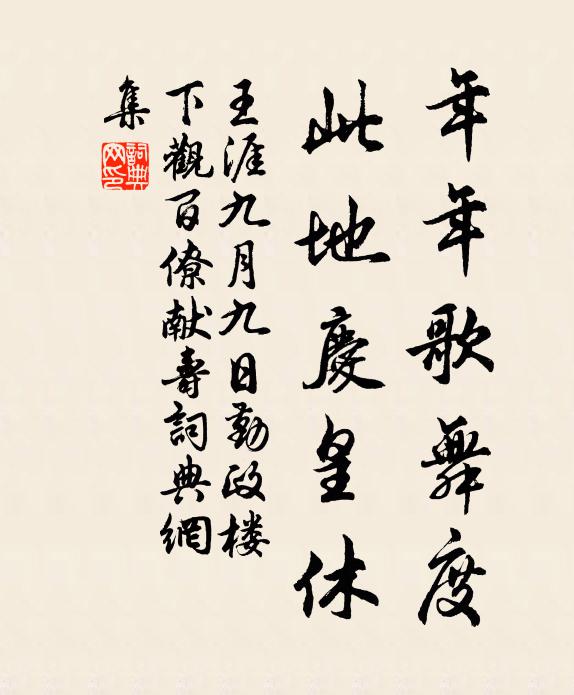 年年歌舞度
此地慶皇休
王涯九月九日勤政楼
下觀百僚献壽詞典網
集
詞典網印